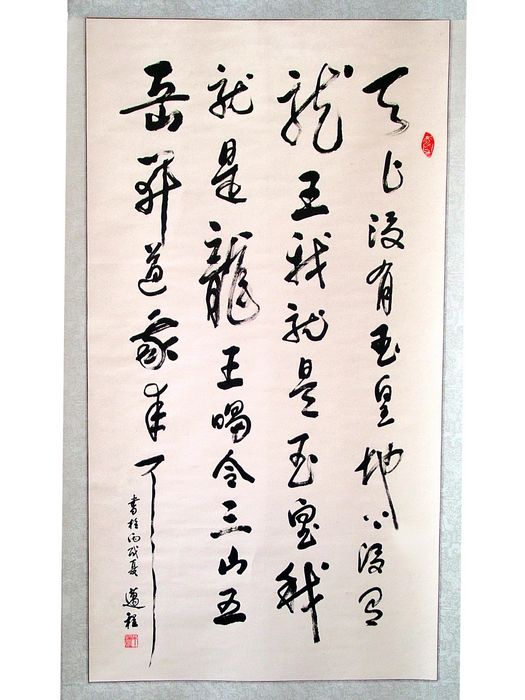 天上没有玉皇地下没有
龙王我就是玉皇我
就是龍王喝令三山五
岳开道我来了
書於丙戌夏 邁程